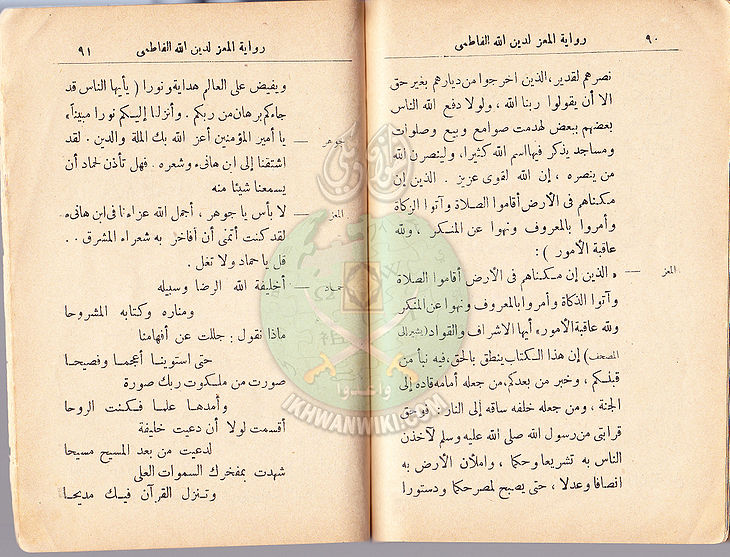 ٩٠ رواية المعز لدين الله الفاطمى
نصرهم لقدير، الذين اخرجوا من ديارهم بغير حق
الا أن يقولوا ربنا الله ، ولولا دفع الله الناس
بعضهم ببعض لهدمت صوامع وبيع وصلوات
ومساجد يذكر فيها اسم الله كثيرا، ولينصرن الله
من ينصره ، إن الله لقوى عزيز . الذين إن
مكناهم فى الأرض أقاموا الصلاة وآتوا الزكاة
وأمروا بالمعروف ونهوا عن المنكر ، ولله
عاقبة الأمور ) :
المعز — « الذين إن مكناهم فى الأرض أقاموا الصلاة
وآتوا الذكاة وأمروا بالمعروف ونهوا عن المنكر
ولله عاقبة الأمور» أيها الاشراف والقواد (يشير الى
المصحف) إن هذا الكتاب ينطق بالحق، فيه نبأ من
قبلكم ، وخبر من بعدكم، من جعله أمامه قاده إلى
الجنة ، ومن جعله خلفه ساقه إلى النار : فوحق
قرابتى من رسول الله صلى الله عليه وسلم لآخذن
الناس به تشريعا وحكما ، واملأن الأرض به
انصافا وعدلا ، حتى يصبح لمصر حكما ودستورا
رواية المعز لدين الله الفاطمى ٩١
ويفيض على العالم هداية ونورا ( يأيها الناس قد
جاءكم برهان من ربكم . وأنزلنا إليكم نورا مبينا»
جوهر — يا أمير المؤمنين أعز الله بك الملة والدين . لقد
اشتقنا إلى ابن هانىء وشعره . فهل تأذن لحماد أن
يسمعنا شيئا منه
المعز — لا بأس يا جوهر ، أجمل الله عزاءنا فى ابن هانىء
لقد كنت أتمنى أن أفاخر به شعراء المشرق . .
قل يا حماد ولا تغل .
حماد — أخليفة الله الرضا وسبيله
ومناره وكتابه المشروحا
ماذا نقول : جللت عن أفهامنا
حتى استوينا أعجما وفصيحا
صورت من ملكوت ربك صورة
وأمدها علما فكنت الروحا
أقسمت لولا أن دعيت خليفة
لدعيت من بعد المسيح مسيحا
شهدت بمفخرك السموات العلى
وتنزل القرآن فيك مديحا
وأعدوا
IKHWANWIKI.COM